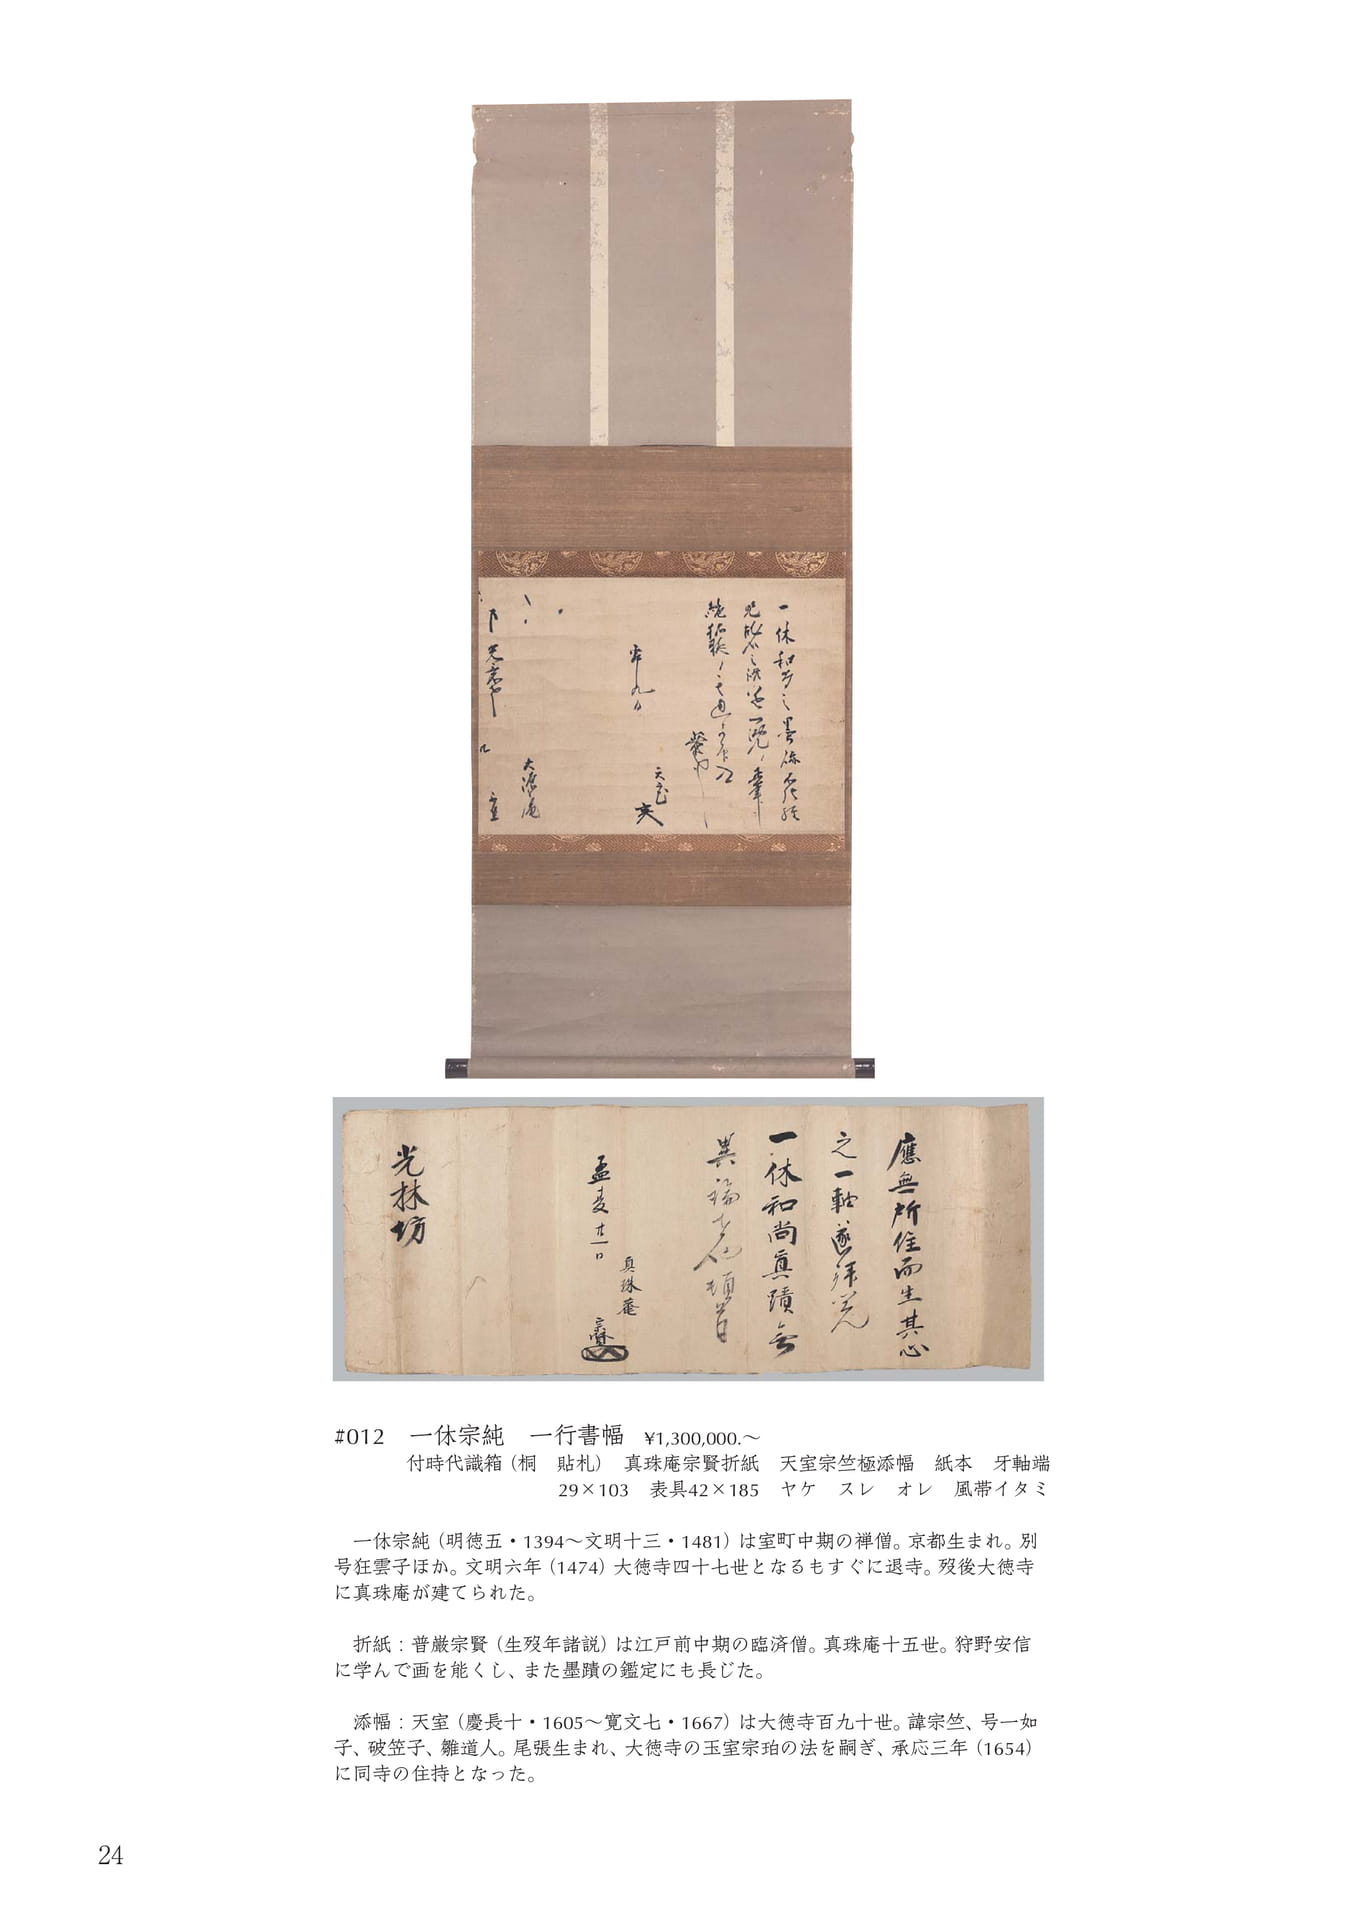 一休和尚之墨跡
天室
應無所住而生其心
之一軸遂拝覧
一休和尚眞蹟無
異論者也頓首
真珠菴
孟夏廿一日
宗賢
光林坊
#012 一休宗純 一行書幅 ¥1,300,000.～
付時代識箱（桐 貼札） 真珠庵宗賢折紙 天室宗竺極添幅 紙本 牙軸端
29×103 表具42×185 ヤケ スレ オレ 風帯イタミ
一休宗純（明徳五・1394～文明十三・1481）は室町中期の禅僧。京都生まれ。別
号狂雲子ほか。文明六年（1474）大徳寺四十七世となるもすぐに退寺。歿後大徳寺
に真珠庵が建てられた。
折紙：普厳宗賢（生歿年諸説）は江戸前中期の臨済僧。真珠庵十五世。狩野安信
に学んで画を能くし、また墨蹟の鑑定にも長じた。
添幅：天室（慶長十・1605～寛文七・1667）は大徳寺百九十世。諱宗竺、号一如
子、破笠子、雛道人。尾張生まれ、大徳寺の玉室宗珀の法を嗣ぎ、承応三年（1654）
に同寺の住持となった。
24